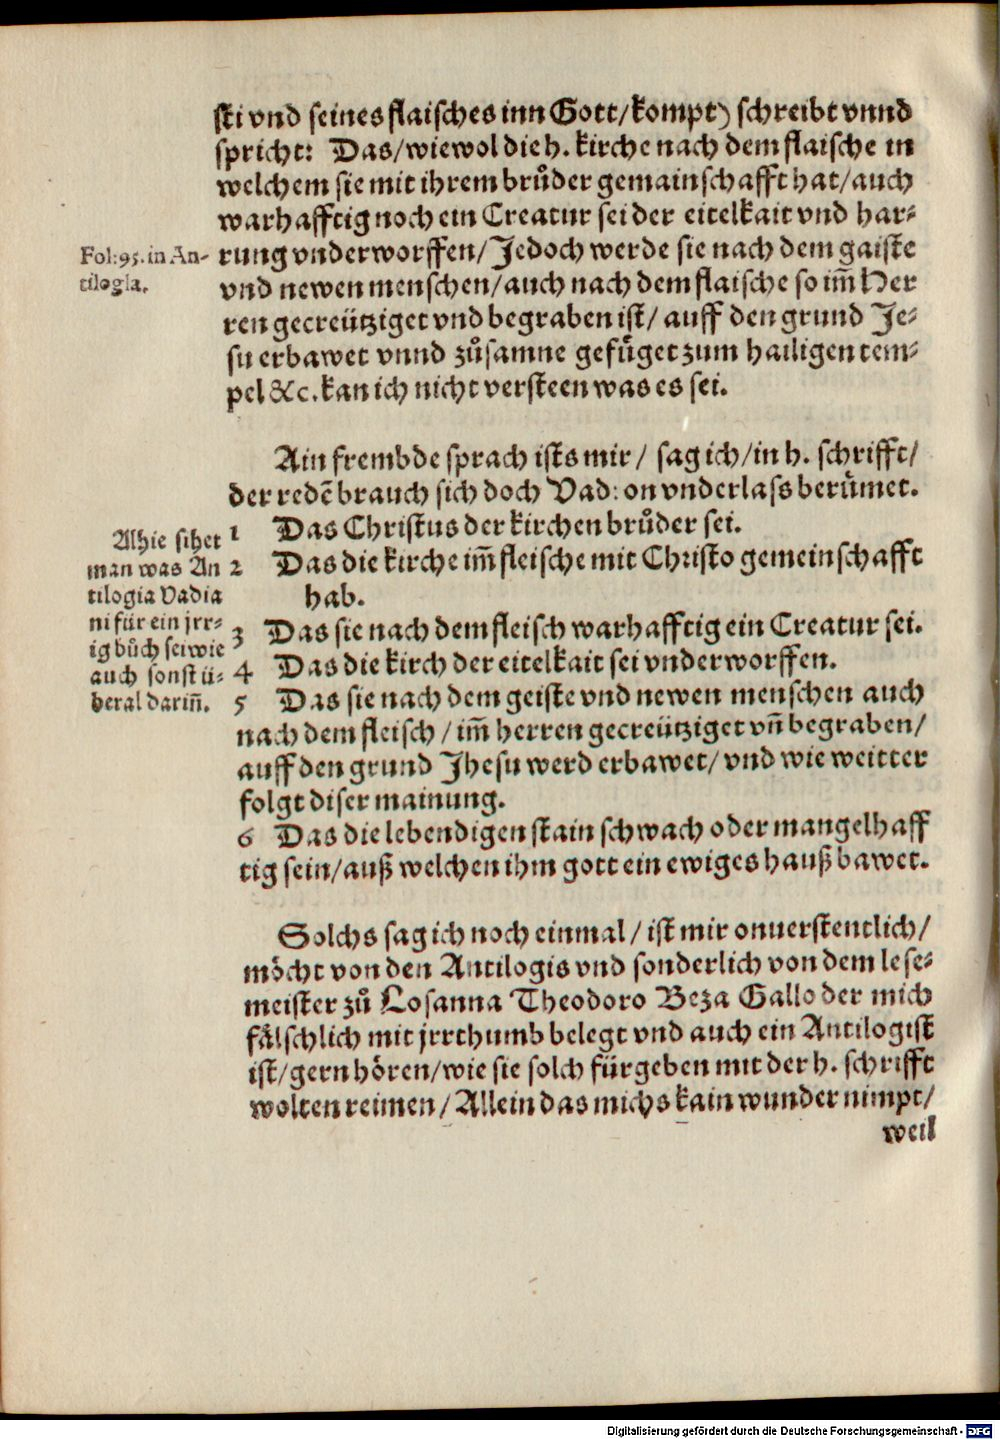 sti vnd seines flaisches inn Gott/kompt) schreibt vnnd
spricht: Das/wiewol die h. kirche nach dem flaische in
welchem sie mit ihrem brůder gemainschafft hat/auch
warhafftig noch ein Creatur sei der eitelkait vnd har-
rung vnderworffen/Jedoch werde sie nach dem gaiste
vnd newen menschen/auch nach dem flaische so im̃ Her
ren gecreütziget vnd begraben ist/ auff den grund Je-
su erbawet vnnd zůsamne gefüget zum hailigen tem-
pel &c. kan ich nicht versteen was es sei.
Fol: 95. in An-
tilogia.
Ain frembde sprach ists mir/ sag ich/in h. schrifft/
der redẽ brauch sich doch Vad: on vnderlass berümet.
1 Das Christus der kirchen brůder sei.
2 Das die kirche im̃ fleische mit Christo gemeinschafft
hab.
3 Das sie nach dem fleisch warhafftig ein Creatur sei.
4 Das die kirch der eitelkait sei vnderworffen.
5 Das sie nach dem geiste vnd newen menschen auch
nach dem fleisch/ im̃ herren gecreütziget vn̄ begraben/
auff den grund Jhesu werd erbawet/ vnd wie weitter
folgt diser mainung.
6 Das die lebendigen stain schwach oder mangelhaff
tig sein/auß welchen ihm gott ein ewiges hauß bawet.
Alhie sihet
man was An
tilogia Vadia
ni für ein jrr-
ig bůch sei wie
auch sonst ü-
beral darin̄.
Solchs sag ich noch einmal/ ist mir onuerstentlich/
möcht von den Antilogis vnd sonderlich von dem lese-
meister zů Losanna Theodoro Beza Gallo der mich
fälschlich mit jrrthumb belegt vnd auch ein Antilogist
ist/gern hören/wie sie solch fürgeben mit der h. schrifft
wolten reimen/ Allein das michs kain wunder nimpt/
weil
Digitalisierung gefördert durch die Deutsche Forschungsgemeinschaft - DFG